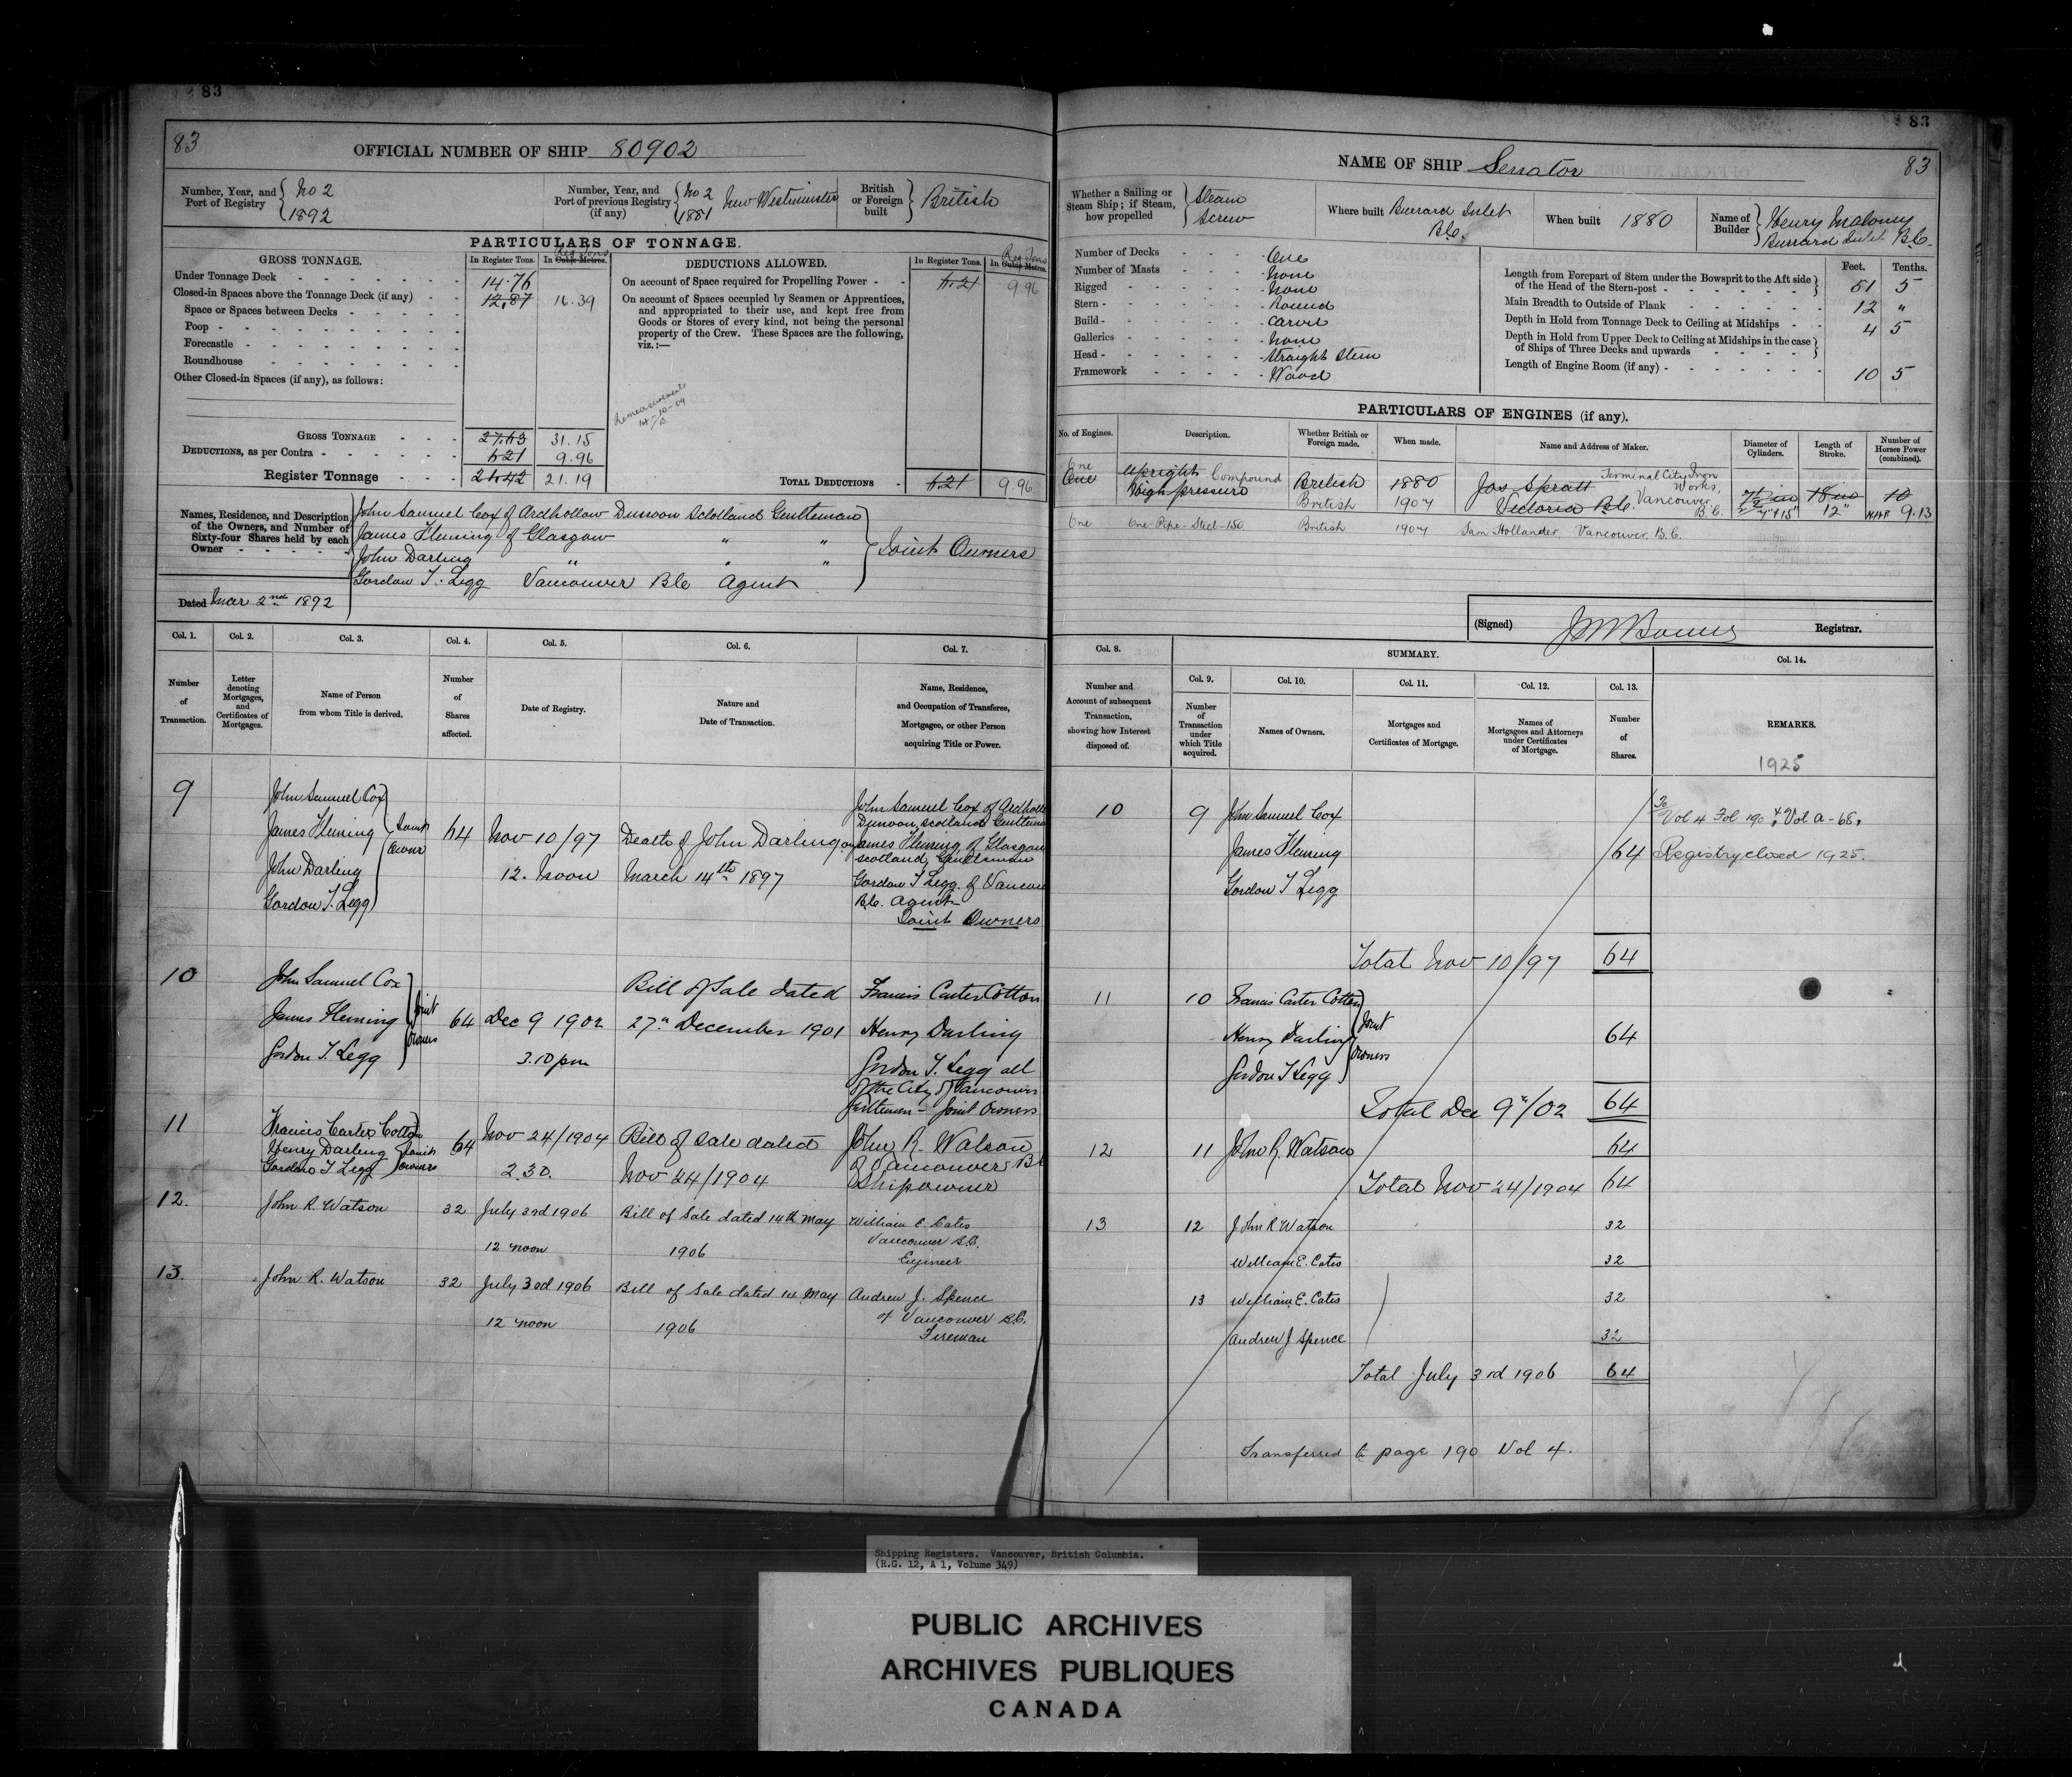 83
83
OFFICIAL NUMBER OF SHIP 80902
Number, Year, and Port of Registry { No 2 1892
Number, Year, and Port of previous Registry (if any) { No 2 1881 New Westminster
British or Foreign built } British
PARTICULARS OF TONNAGE.
GROSS TONNAGE.
In Register Tons.
In Cubic Metres. Reg Tons
DEDUCTIONS ALLOWED.
In Register Tons.
In Cubic Metres. Reg Tons
Under Tonnage Deck 14.76
Closed-in Spaces above the Tonnage Deck (if any) 12.87 16.39
Space or Spaces between Decks
Poop
Forecastle
Roundhouse
Other Closed-in Spaces (if any), as follows:
On account of Space required for Propelling Power 6.21 9.96
On account of Spaces occupied by Seamen or Apprentices,
and appropriated to their use, and kept free from
Goods or Stores of every kind, not being the personal
property of the Crew. These Spaces are the following,
viz.:—
Remeasurement
GROSS TONNAGE 27.63 31.15
DEDUCTIONS, as per Contra 6.21 9.96
Register Tonnage 21.42 21.19
TOTAL DEDUCTIONS 6.21 9.96
Names, Residence, and Description
of the Owners, and Number of
Sixty-four Shares held by each
Owner
John Samuel Cox of Ardhollow Dunoon Scotland Gentleman
James Fleming of Glasgow " "
John Darling " " "
Gordon T. Legg Vancouver B.C. Agent
Joint Owners
Dated Mar 2nd 1892
Col. 1.
Number of Transaction.
Col. 2.
Letter denoting Mortgages, and Certificates of Mortgages.
Col. 3.
Name of Person from whom Title is derived.
Col. 4.
Number of Shares affected.
Col. 5.
Date of Registry.
Col. 6.
Nature and Date of Transaction.
Col. 7.
Name, Residence, and Occupation of Transferee, Mortgagee, or other Person acquiring Title or Power.
9
John Samuel Cox
James Fleming
John Darling
Gordon T. Legg
Joint Owners
64
Nov 10/97
12. Noon
Death of John Darling on
March 14th 1897
John Samuel Cox of Ardhollow
Dunoon, Scotland Gentleman
James Fleming of Glasgow
Scotland, Gentleman
Gordon T Legg of Vancou
B.C. Agent
Joint Owners
10
John Samuel Cox
James Fleming
Gordon T. Legg
Joint Owners
64
Dec 9 1902
3.10 pm
Bill of Sale dated
27th December 1901
Francis Carter Cotton
Henry Darling
Gordon T. Legg all
of the City of Vancouver
Gentlemen - Joint Owners
11
Francis Carter Cotton
Henry Darling
Gordon T Legg
Joint Owners
64
Nov 24/1904
2.30.
Bill of Sale dated
Nov 24/1904
John R. Watson
of Vancouver B.C
Shipowner
12.
John R. Watson
32
July 3rd 1906
12 noon
Bill of Sale dated 14th May
1906
William E. Cates
Vancouver B.C.
Engineer
13.
John R. Watson
32
July 3rd 1906
12 noon
Bill of Sale dated 14 May
1906
Andrew J. Spence
of Vancouver B.C.
Fireman
83
NAME OF SHIP Senator
83
Whether a Sailing or Steam Ship; if Steam, how propelled } Steam Screw
Where built Burrard Inlet B.C.
When built 1880
Name of Builder } Henry Maloney Burrard Inlet B.C.
Number of Decks One
Number of Masts None
Rigged None
Stern Round
Build Carvel
Galleries None
Head Straight Stem
Framework Wood
Feet. Tenths.
Length from Forepart of Stem under the Bowsprit to the Aft side of the Head of the Stern-post 51 5
Main Breadth to Outside of Plank 12 "
Depth in Hold from Tonnage Deck to Ceiling at Midships 4 5
Depth in Hold from Upper Deck to Ceiling at Midships in the case of Ships of Three Decks and upwards
Length of Engine Room (if any) 10 5
PARTICULARS OF ENGINES (if any).
No. of Engines.
Description.
Whether British or Foreign made.
When made.
Name and Address of Maker.
Diameter of Cylinders.
Length of Stroke.
Number of Horses Power (combined).
One Upright Compound British 1880 Jas Spratt Terminal City Iron Works,
One High pressure British 1907 Victoria B.C. Vancouver B.C. 18 in 12" 10 NHP 9.13
One One-Pipe-Steel-150 British 1907 Sam Hollander, Vancouver, B.C.
(Signed)
Registrar.
Col. 8.
Number and Account of subsequent Transaction, showing how Interest disposed of.
SUMMARY.
Col. 9.
Number of Transaction under which Title acquired.
Col. 10.
Names of Owners.
Col. 11.
Mortgages and Certificates of Mortgage.
Col. 12.
Names of Mortgagees and Attorneys under Certificates of Mortgage.
Col. 13.
Number of Shares.
Col. 14.
REMARKS.
1925
10 9 John Samuel Cox
James Fleming 64
Gordon T Legg
To Vol 4 Fol 190 & Vol A-68.
Registry closed 1925.
Total Nov 10/97 64
11 10 Francis Carter Cotton
Henry Darling 64
Gordon T Legg
Joint Owners
Total Dec 9th/02 64
12 11 John R. Watson 64
Total Nov 24/1904 64
13 12 John R Watson 32
William E. Cates 32
13 William E. Cates 32
Andrew J Spence 32
Total July 3rd 1906 64
Transferred to page 190 Vol 4.
Shipping Registers. Vancouver, British Columbia.
(R.G. 12, A 1, Volume 349)
PUBLIC ARCHIVES
ARCHIVES PUBLIQUES
CANADA